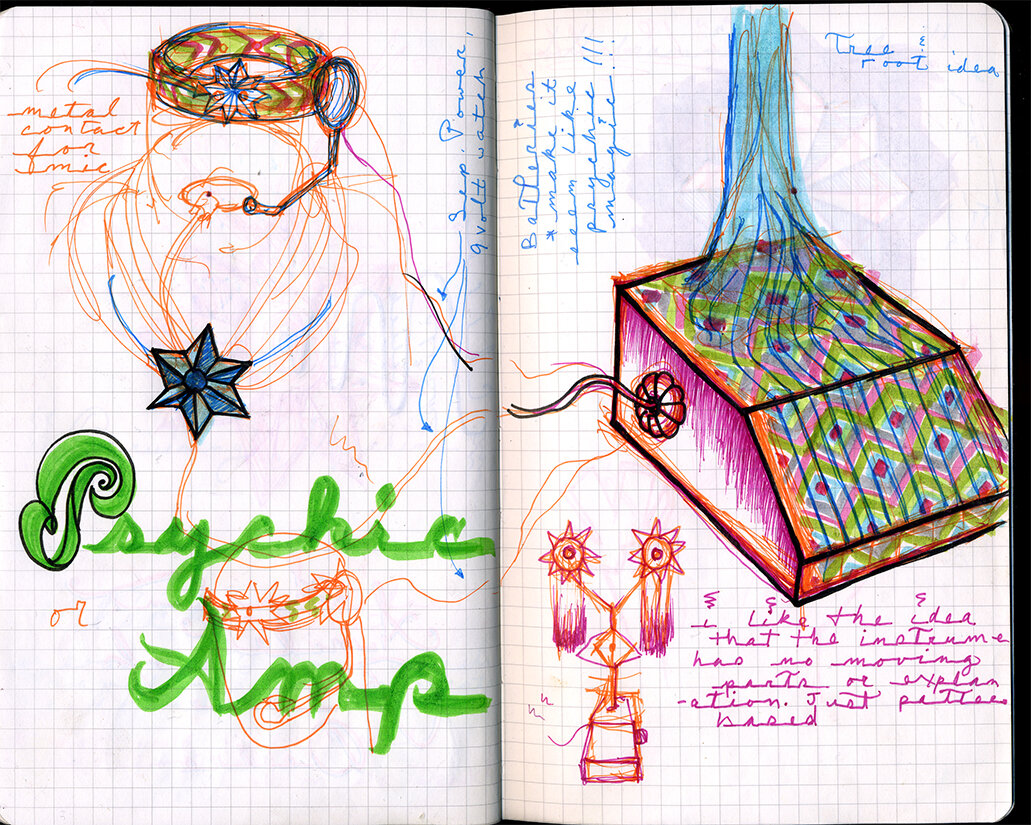 metal
contact
for
mic
Sep. Power,
9volt watch
Psychic
or
Amp
Batteries
* make it
seem like
psychic
magic !!!
Tree &
root idea
& & &
i like the idea
that the instrume
has no moving
parts or explan
-ation. Just
based